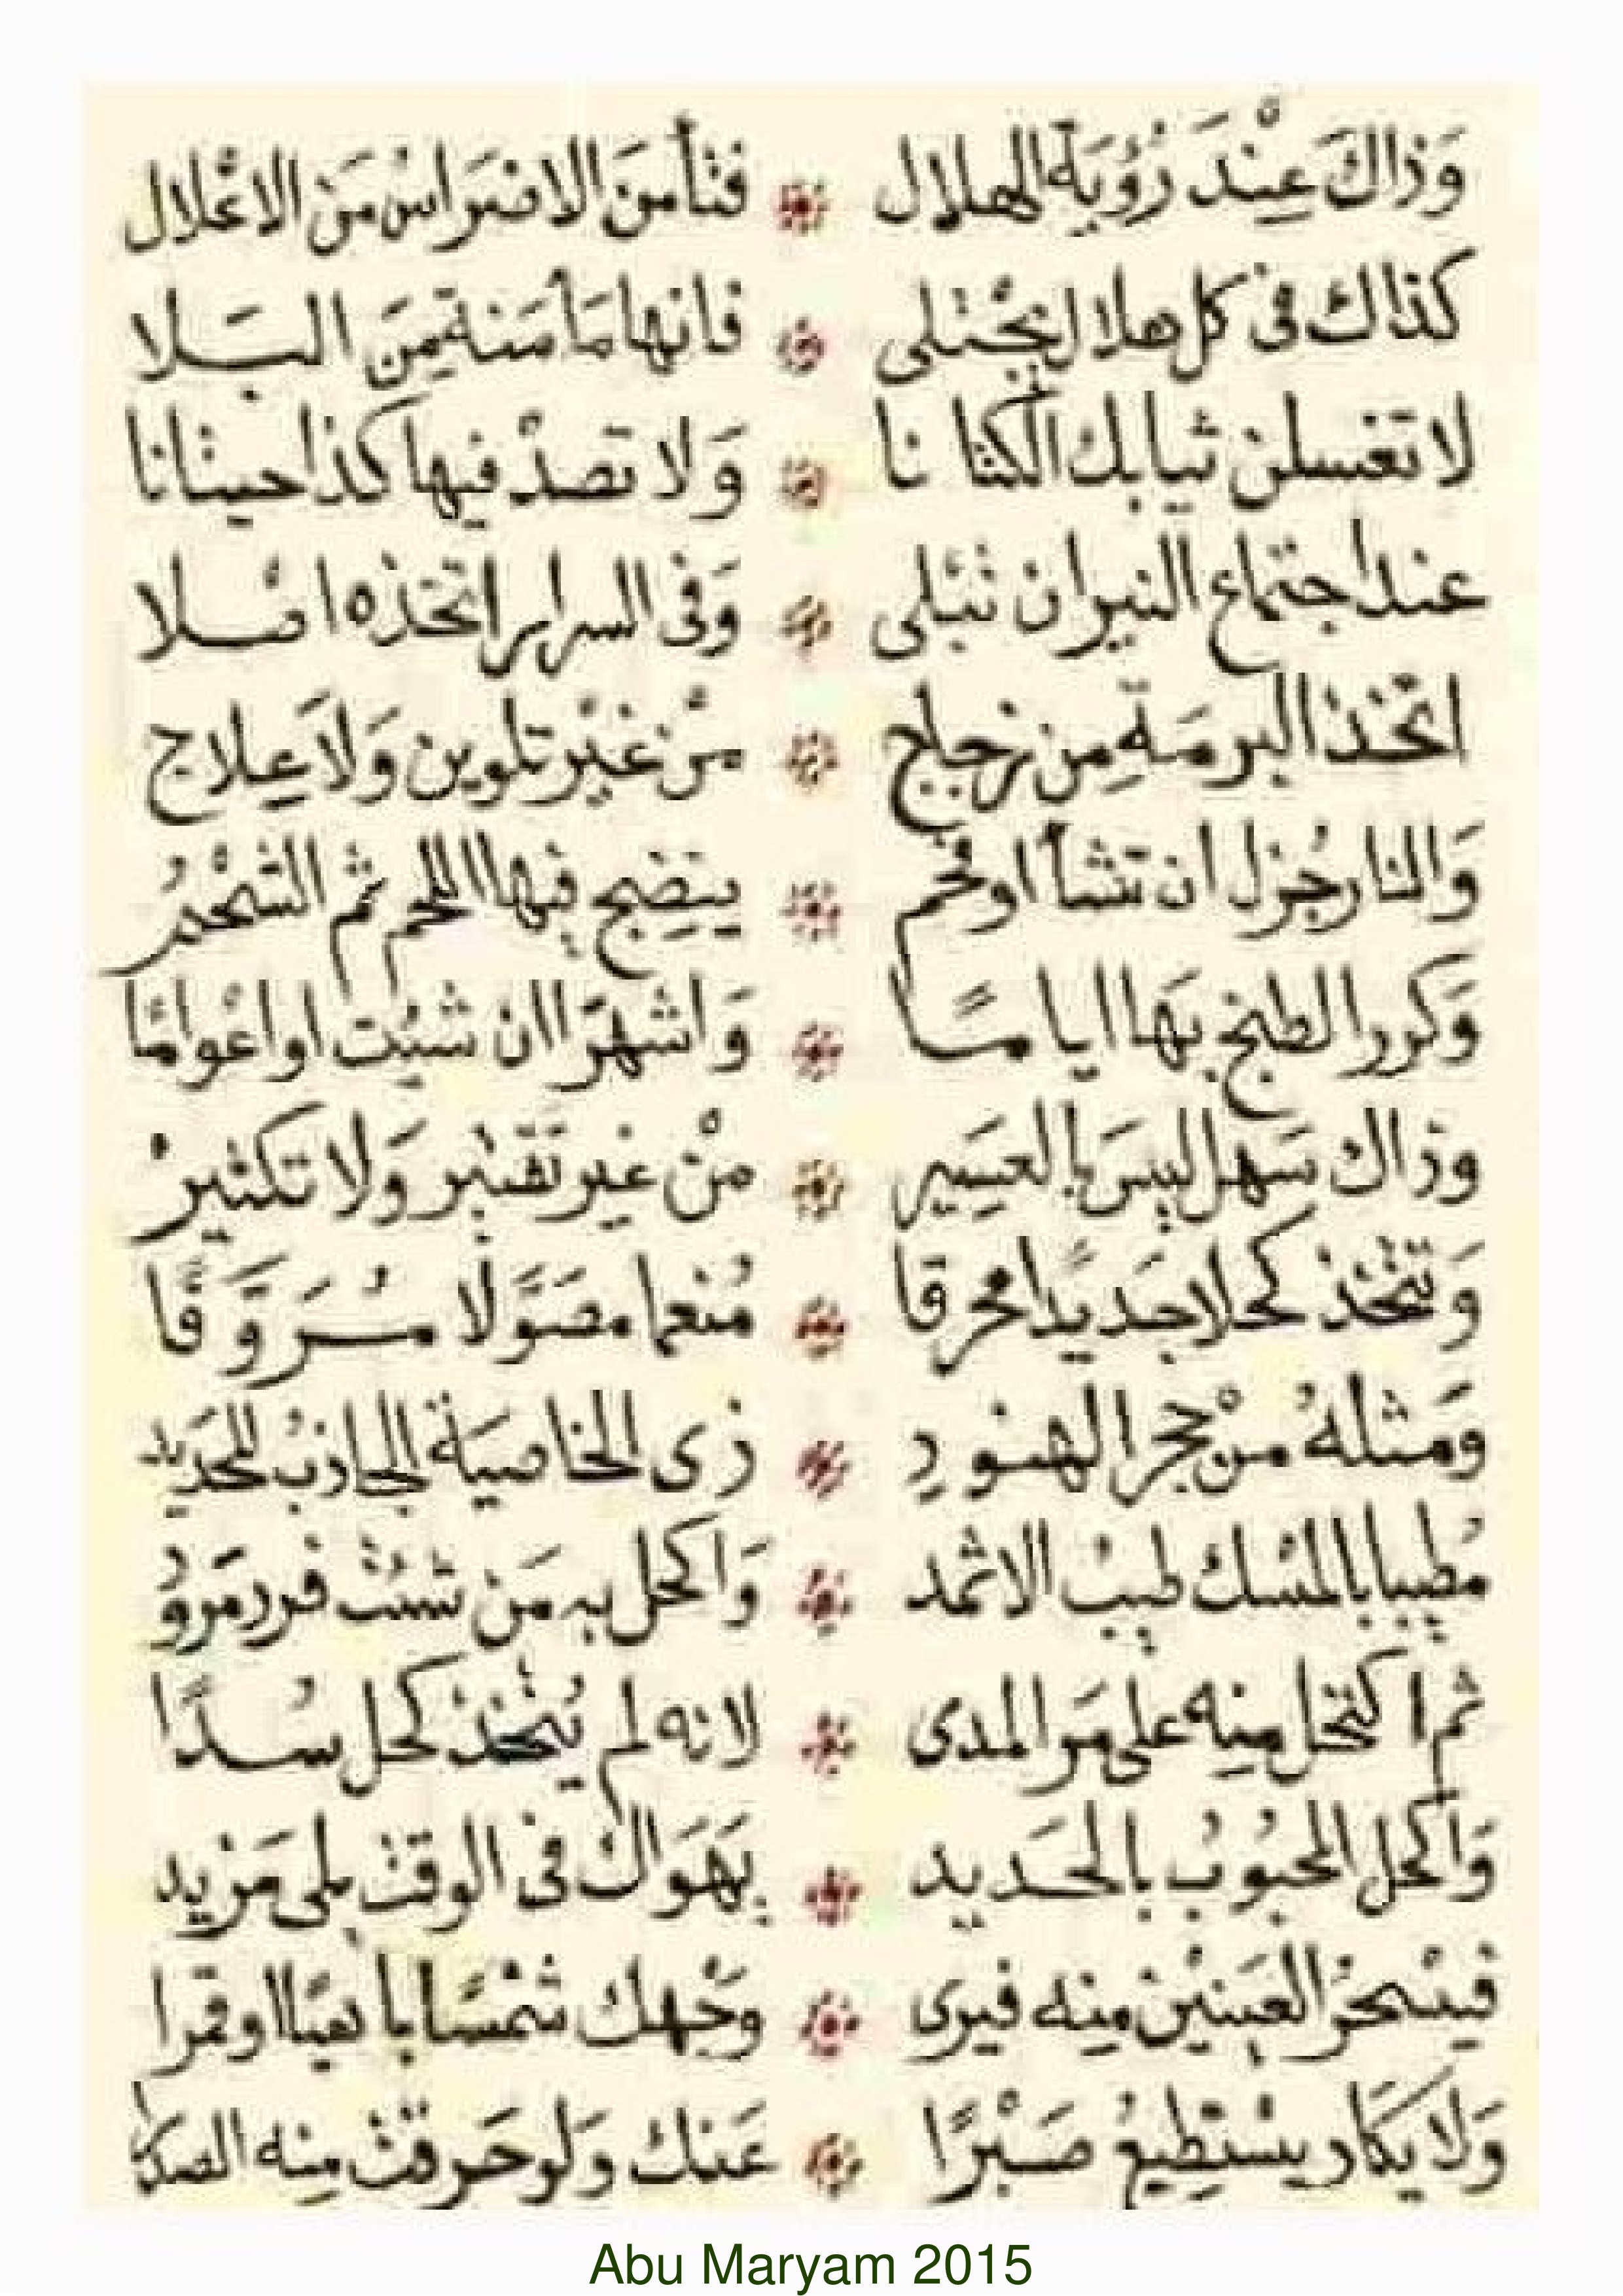 وَذاكَ عِنْدَ رُؤيَةِ الهلال فتأمنَ الاضراسُ منَ الاعْلال
كذاك فى كل هلال تجْتلى فانها مَأمَنة مِنَ البَلا
لا تغسلن ثيابك الكتانا وَلا تصدْ فيها كذا حيتانا
عند اجتماع النيران تبْلى وَفى السرار اتخذه اصْلا
اتخذ البرمَة مِن زجاج منْ غيْر تلوين وَلا عِلاج
وَالنار جُزل ان تشأ او فحم ينضِج فيها اللحم ثم الشحْمُ
وَكرر الطبخ بها اياما وَاشهرَا ان شئت او اعْوامًا
وذاك سَهل ليسَ بالعسِير منْ غير تقتير وَلا تكثير
وَتتخذ كحلا جَديدًا محرقا مُنعما مصَوَّلًا مُرَوَّقًا
وَمثلهُ منْ حجر الهنود ذى الخاصيَة الجاذبُ للحَديد
مُطيبا بالمسْك طيبْ الاثمد وَاكحل به مَن شئتْ فى رمرود
ثم اكتحل منه على مَر المدى لانه لم يُتخذ كحل سُدًا
وَاكحل المحبُوب بالحَديد يَهوَاك فى الوقت بلى مَزيد
فيسْحَرُ العَينيْن منه فيرى وَجْهك شمْسًا باهيًا او قمرا
وَلا يكاد يسْتطِيعُ صَبْرًا عَنك وَلو حَرقتْ منه الصدَرا
Abu Maryam 2015